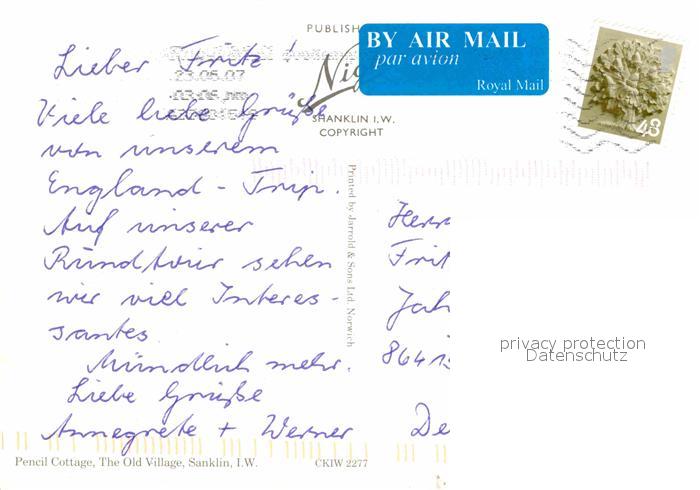 PUBLISH
BY AIR MAIL
par avion
Royal Mail
48
SHANKLIN I.W.
COPYRIGHT
23.05.07
Lieber Fritz!
Viele liebe Grüße
von unserem
England - Trip.
Auf unserer
Rundtour sehen
wir viel Interes-
santes
Mündlich mehr.
Liebe Grüße
Annegrete + Werner
Printed by Jarrold & Sons Ltd. Norwich
Herr
Frit
Jah
8641
De
privacy protection
Datenschutz
Pencil Cottage, The Old Village, Sanklin, I.W.
CKIW 2277